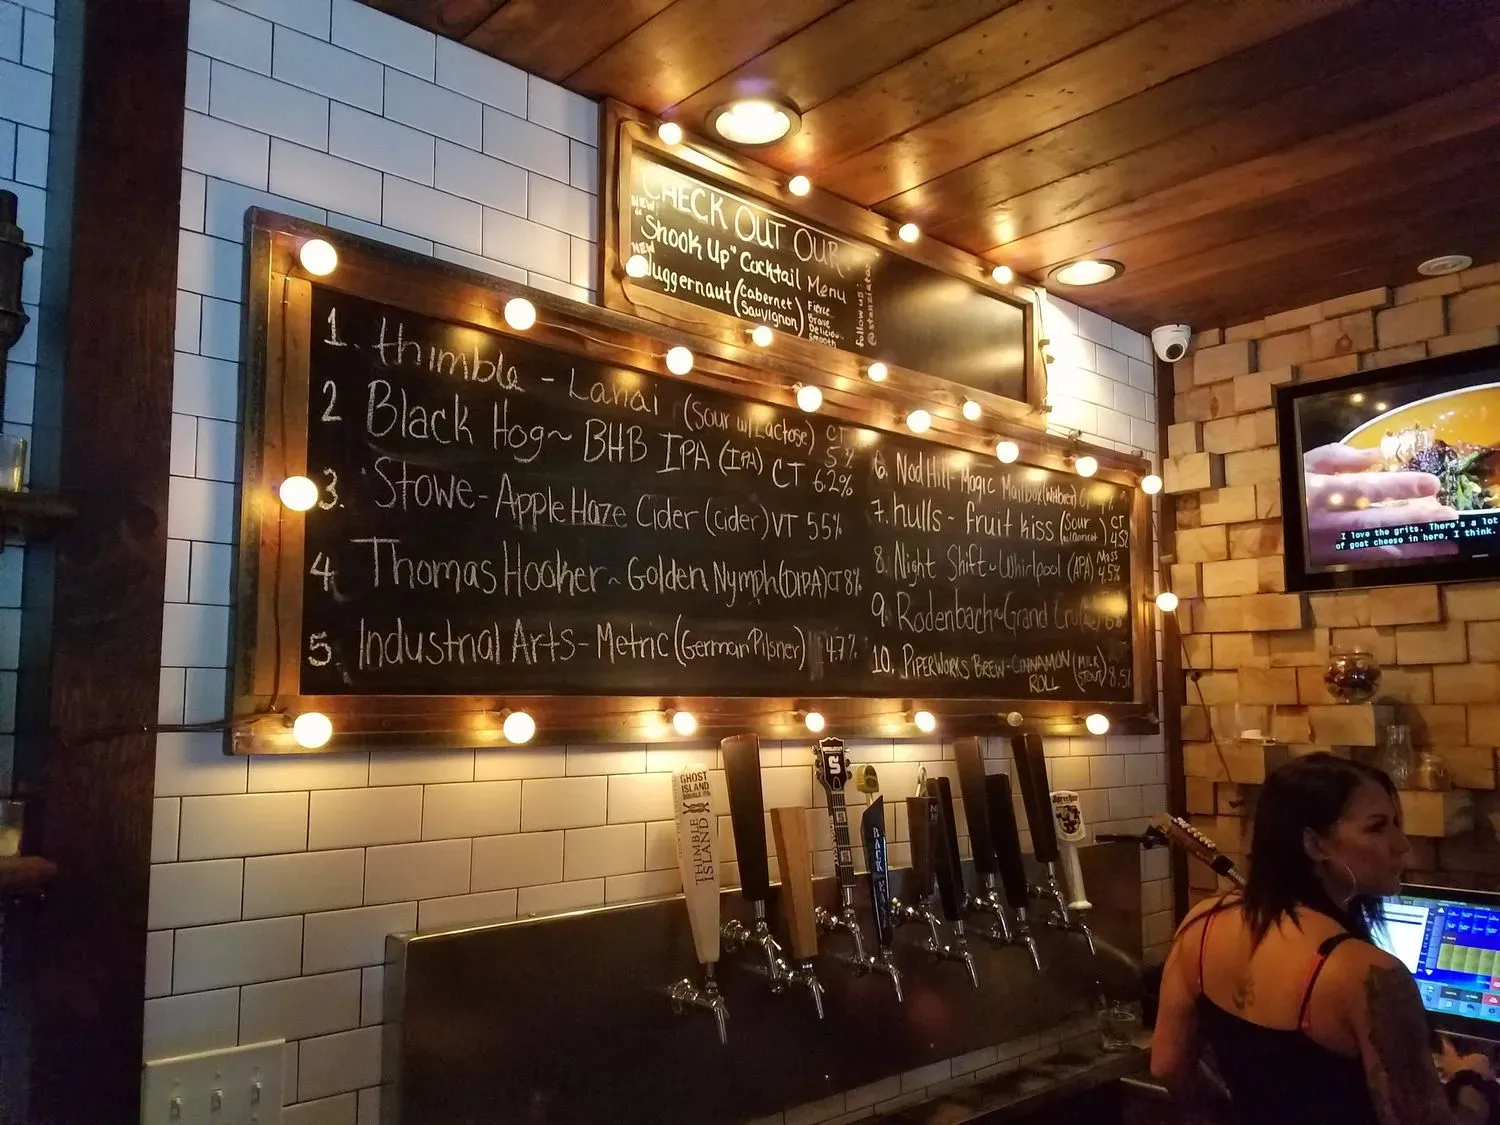 CHECK OUT OUR
NEW
"Shook Up" Cocktail Menu
NEW
Juggernaut (Cabernet
Sauvignon)
Fierce
Brave
Delicious
Smooth
follow us:
1. thimble - Lanai (Sour w/Lactose) CT 5%
2 Black Hog~ BHB IPA (IPA) CT 6.2%
3. Stowe- Apple Haze Cider (cider) VT 5.5%
4 Thomas Hooker~ Golden Nymph (DIPA) CT 8%
5. Industrial Arts- Metric (German Pilsner) 4.7%
6. Nod Hill- Magic Mailbox (Witbier)
7. hulls~ fruit kiss (Sour
CT
8. Night Shift~ Whirlpool (APA) Mass 4.5%
9. Rodenbach~Grand Cru
10. PIPERWORKS BREW-CINNAMON
ROLL
(MILK
STOUT)
8.5%
GHOST
ISLAND
DOUBLE IPA
THIMBLE
ISLAND
S
BACK
I love the grits. There's a lot
of goat cheese in here, I think.